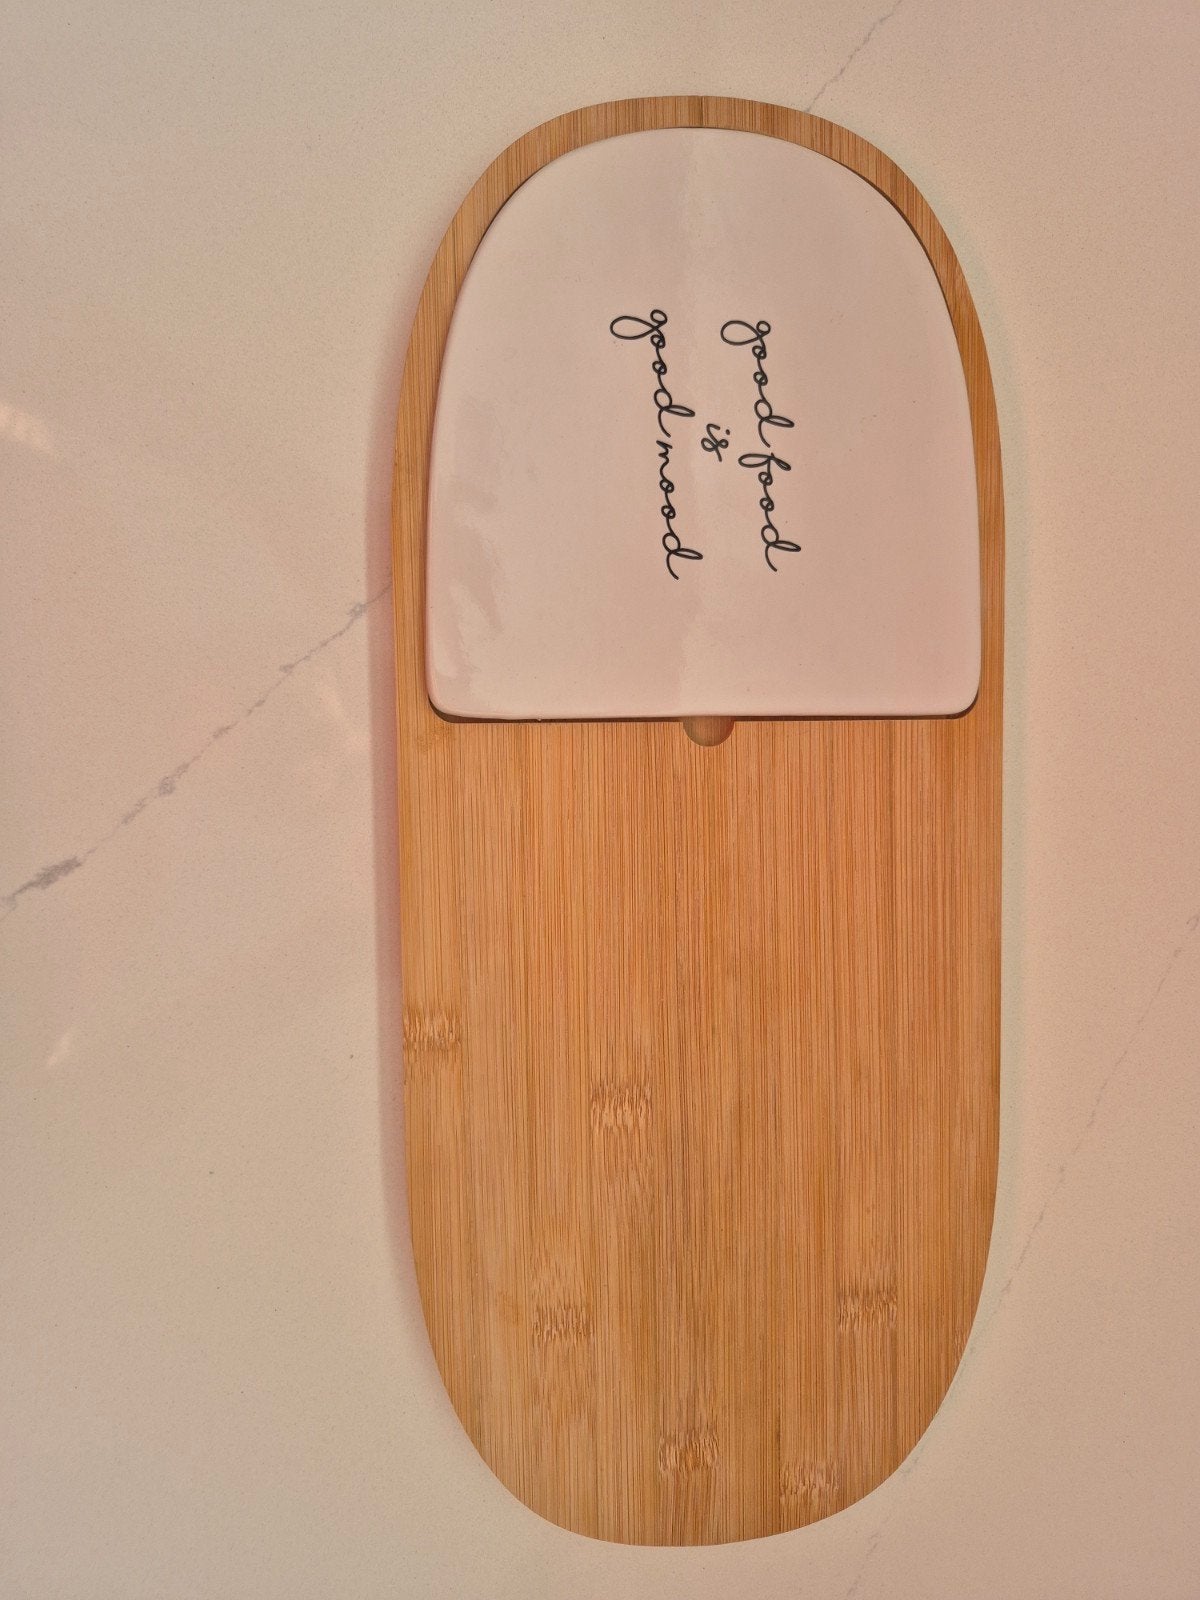 good food
is
good mood